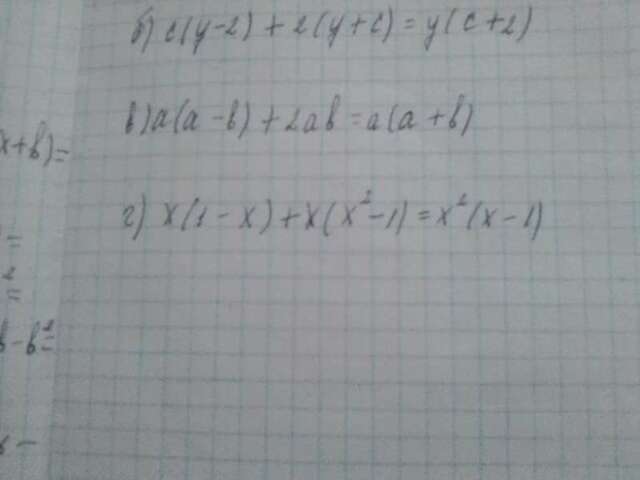 б) c(y-2) + 2(y+c) = y(c+2)
x+b)=
в) a(a-b) + 2ab = a(a+b)
г) x(1-x) + x(x²-1) = x²(x-1)
=
² =
b-b²=